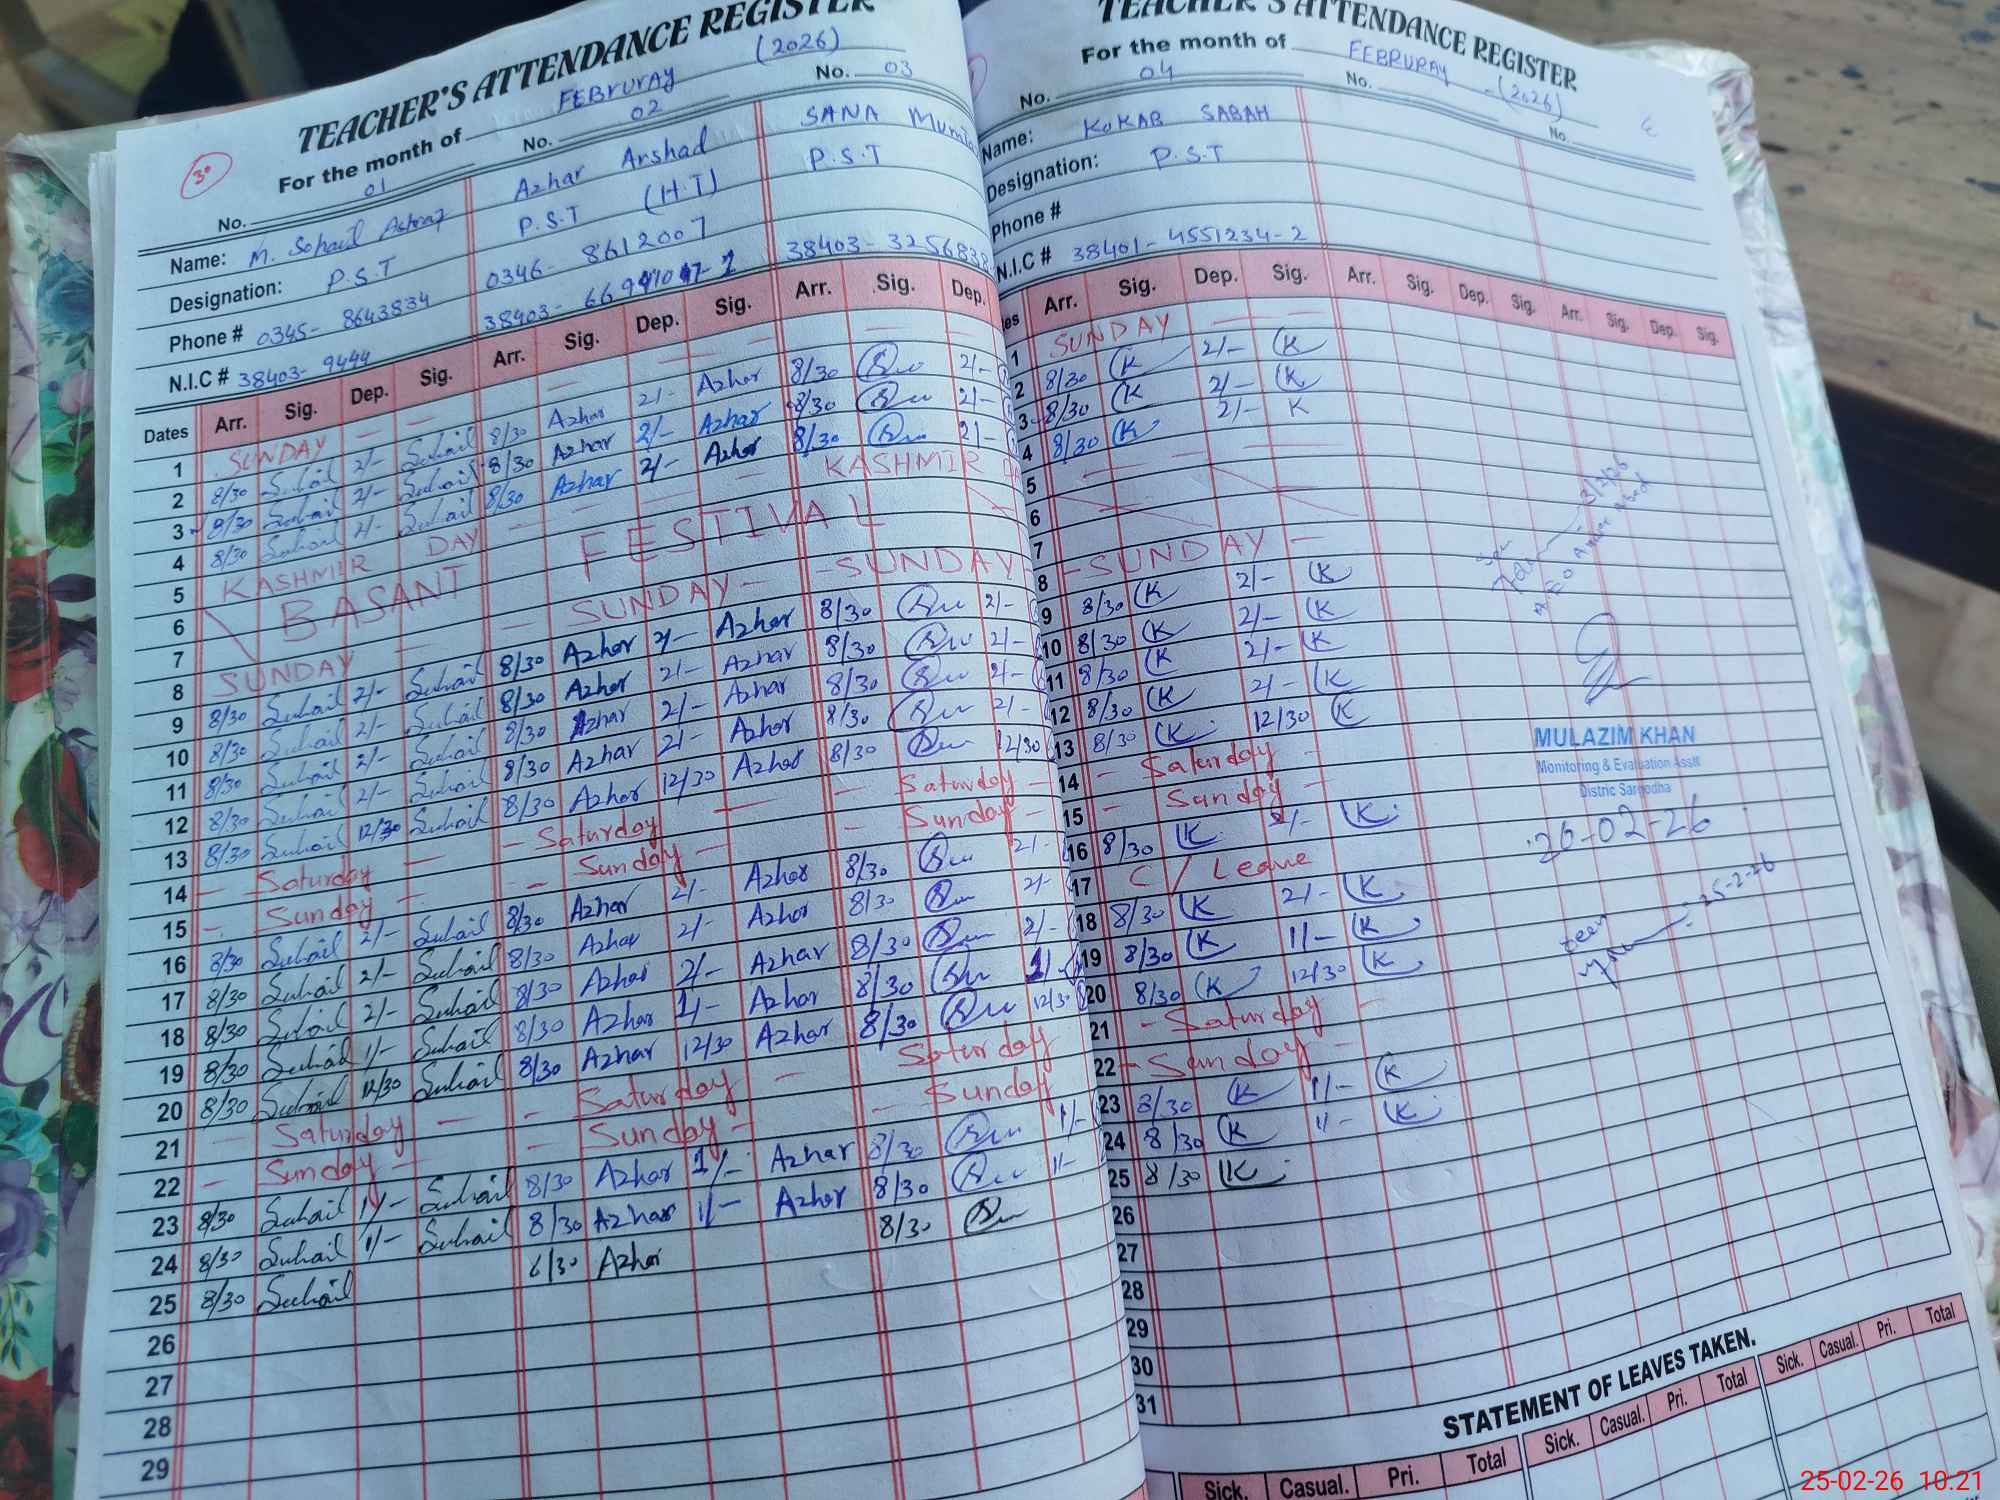 TEACHER'S ATTENDANCE REGISTER
For the month of FEBRURAY (2026)
3
No. 01 No. 02 No. 03
Name: M. Sohail Ashraf Azhar Arshad SANA
Designation: P.S.T P.S.T (H.T) P.S.T
Phone # 0345- 8643834 0346- 8612007
N.I.C # 38403- 9444 38403- 38403- 3256838
Dates Arr. Sig. Dep. Sig. Arr. Sig. Dep. Sig. Arr. Sig. Dep.
1 SUNDAY
2 8/30 Suhail 2/- Suhail 8/30 Azhar 2/- Azhar 8/30 2/-
3 8/30 Suhail 2/- Suhail 8/30 Azhar 2/- Azhar 8/30 2/-
4 8/30 Suhail 2/- Suhail 8/30 Azhar 2/- Azhar 8/30 2/-
5 KASHMIR DAY KASHMIR
6 BASANT FESTIVAL
7
8 SUNDAY - SUNDAY - - SUNDAY
9 8/30 Suhail 2/- Suhail 8/30 Azhar 2/- Azhar 8/30 2/-
10 8/30 Suhail 2/- Suhail 8/30 Azhar 2/- Azhar 8/30 2/-
11 8/30 Suhail 2/- Suhail 8/30 Azhar 2/- Azhar 8/30 2/-
12 8/30 Suhail 2/- Suhail 8/30 Azhar 2/- Azhar 8/30 2/-
13 8/30 Suhail 12/30 Suhail 8/30 Azhar 12/30 Azhar 8/30 12/30
14 - Saturday - - Saturday - Saturday -
15 - Sunday - - Sunday - - Sunday -
16 8/30 Suhail 2/- Suhail 8/30 Azhar 2/- Azhar 8/30 2/-
17 8/30 Suhail 2/- Suhail 8/30 Azhar 2/- Azhar 8/30 2/-
18 8/30 Suhail 2/- Suhail 8/30 Azhar 2/- Azhar 8/30 2/-
19 8/30 Suhail 1/- Suhail 8/30 Azhar 1/- Azhar 8/30 1/-
20 8/30 Suhail 12/30 Suhail 8/30 Azhar 12/30 Azhar 8/30 12/30
21 - Saturday - - Saturday - Saturday
22 - Sunday - - Sunday - - Sunday
23 8/30 Suhail 1/- Suhail 8/30 Azhar 1/- Azhar 8/30 1/-
24 8/30 Suhail 1/- Suhail 8/30 Azhar 1/- Azhar 8/30 1/-
25 8/30 Suhail 8/30 Azhar 8/30
26
27
28
29
TEACHER'S ATTENDANCE REGISTER
For the month of FEBRURAY (2026)
No. 04 No. No.
Name: KOKAB SABAH
Designation: P.S.T
Phone #
N.I.C # 38401- 4551234-2
Arr. Sig. Dep. Sig. Arr. Sig. Dep. Sig. Arr. Sig. Dep. Sig.
1 SUNDAY
2 8/30 K 2/- K
3 8/30 K 2/- K
4 8/30 K 2/- K
5
6
7
8 - SUNDAY -
9 8/30 K 2/- K
10 8/30 K 2/- K
11 8/30 K 2/- K
12 8/30 K 2/- K
13 8/30 K 12/30 K
14 - Saturday -
15 - Sunday -
16 8/30 K 2/- K
17 C/Leave
18 8/30 K 2/- K
19 8/30 K 1/- K
20 8/30 K 12/30 K
21 - Saturday -
22 - Sunday -
23 8/30 K 1/- K
24 8/30 K 1/- K
25 8/30 K
26
27
28
29
30
31
3/2/26
MULAZIM KHAN
Monitoring & Evaluation Asstt
Distric Sargodha
26-02-26
Seen
25-2-26
STATEMENT OF LEAVES TAKEN.
Sick. Casual. Pri. Total Sick. Casual. Pri. Total Sick. Casual. Pri. Total
25-02-26 10:21